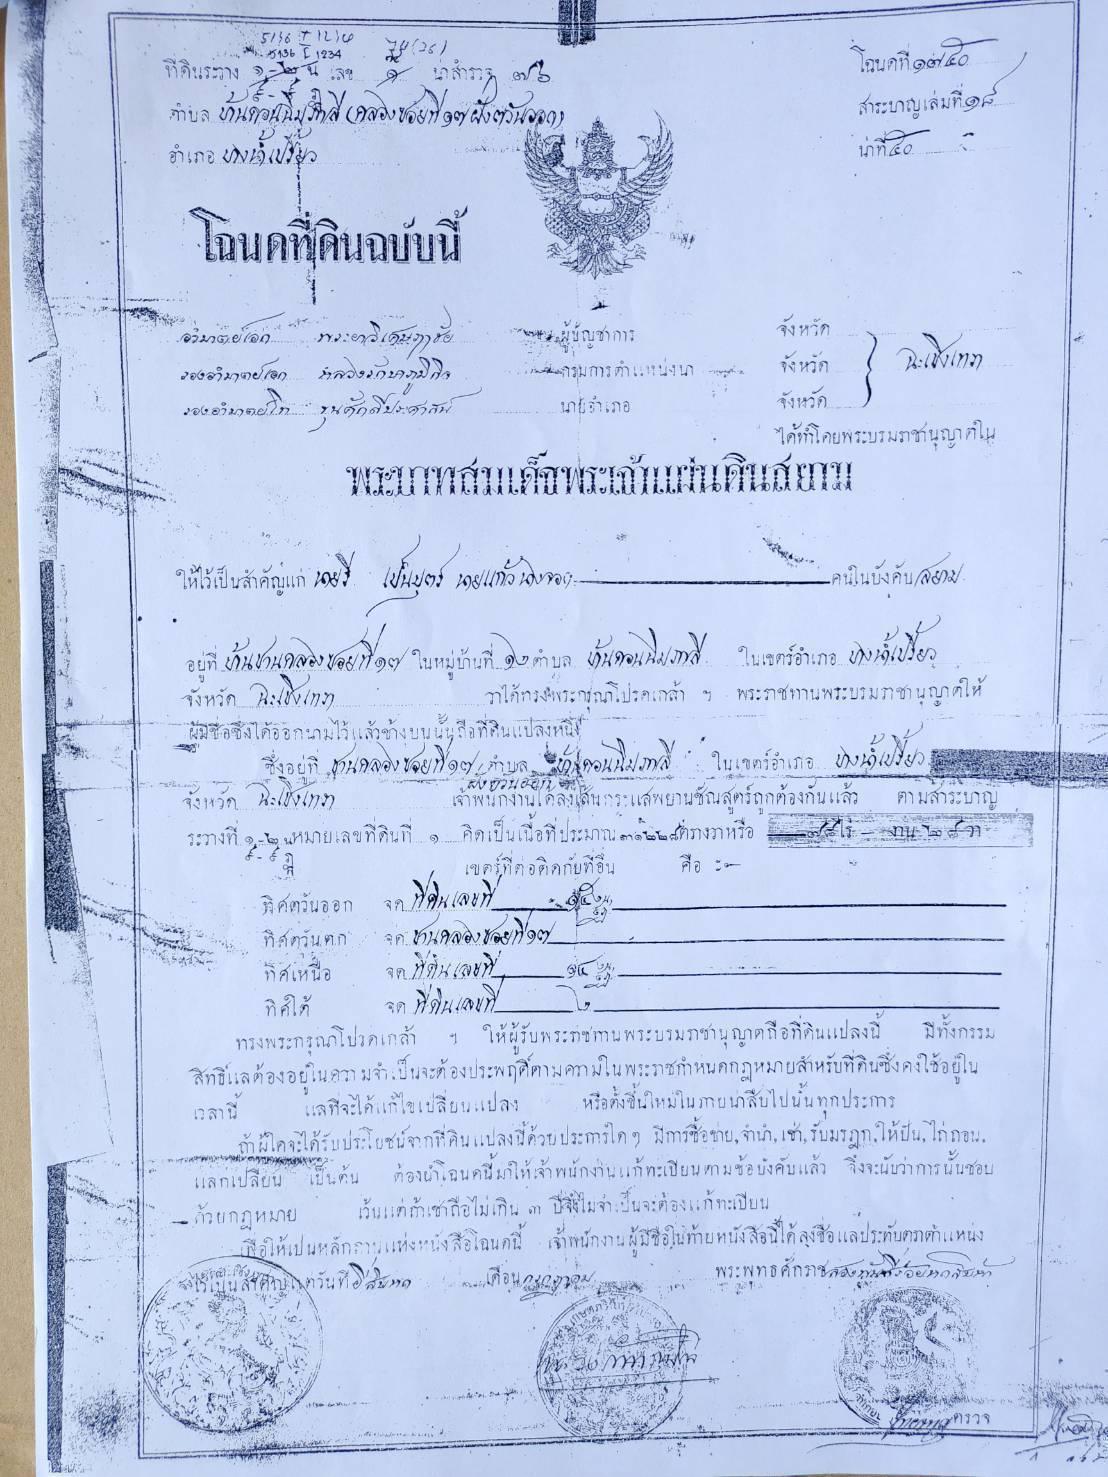 5136 I 1234
ที่ดินระวาง เลข ๑ น่าสำรวจ ๓๖
โฉนดที่ ๑๗๕๐
ตำบล บ้านดอนฉิมพลี (คลองซอยที่ ๑๗ ฝั่งตวันออก)
สาระบาญเล่มที่ ๑๘
อำเภอ บางน้ำเปรี้ยว
น่าที่ ๕๐
โฉนดที่ดินฉบับนี้
อำมาตย์เอก พระยาวิเศษฦาชัย ผู้บัญชาการ จังหวัด
รองอำมาตย์เอก หลวงรักษาภูมิกิจ กรมการตำแหน่งนา จังหวัด ฉะเชิงเทรา
รองอำมาตย์โท ขุนศักดิ์ประศาสน์ นายอำเภอ จังหวัด
ได้ทำโดยพระบรมราชานุญาตใน
พระบาทสมเด็จพระเจ้าแผ่นดินสยาม
ให้ไว้เป็นสำคัญแก่ นายรี เป็นบุตร นายแก้ว คนในบังคับ สยาม
อยู่ที่ บ้านชานคลองซอยที่ ๑๗ ในหมู่บ้านที่ ๑๒ ตำบล บ้านดอนฉิมพลี ในเขตร์อำเภอ บางน้ำเปรี้ยว
จังหวัด ฉะเชิงเทรา ว่าได้ทรงพระกรุณาโปรดเกล้า ฯ พระราชทานพระบรมราชานุญาตให้
ผู้มีชื่อซึ่งได้ออกนามไว้แล้วข้างบนนั้นถือที่ดินแปลงหนึ่ง
ซึ่งอยู่ที่ ชานคลองซอยที่ ๑๗ ตำบล บ้านดอนฉิมพลี ในเขตร์อำเภอ บางน้ำเปรี้ยว
ฝั่งตวันออก
จังหวัด ฉะเชิงเทรา เจ้าพนักงานได้ลงเส้นกระแสพยานชัณสูตร์ถูกต้องกันแล้ว ตามสาระบาญ
ระวางที่ หมายเลขที่ดินที่ ๑ คิดเป็นเนื้อที่ประมาณ ๓๑๒๒๘ ตารางวาหรือ ๗๘ ไร่ – งาน ๒๘ วา
เขตร์ที่ต่อติดกับที่อื่น คือ :-
ทิศตวันออก จด ที่ดินเลขที่ ๑๔
ทิศตวันตก จด ชานคลองซอยที่ ๑๗
ทิศเหนือ จด ที่ดินเลขที่ ๑๔
ทิศใต้ จด ที่ดินเลขที่ ๒
ทรงพระกรุณาโปรดเกล้า ฯ ให้ผู้รับพระราชทานพระบรมราชานุญาตถือที่ดินแปลงนี้ มีทั้งกรรม
สิทธิ์แลต้องอยู่ในความจำเป็นจะต้องประพฤติ์ตามความในพระราชกำหนดกฎหมายสำหรับที่ดินซึ่งคงใช้อยู่ใน
เวลานี้ แลที่จะได้แก้ไขเปลี่ยนแปลง หรือตั้งขึ้นใหม่ในภายน่าสืบไปนั้นทุกประการ
ถ้าผู้ใดจะได้รับประโยชน์จากที่ดินแปลงนี้ด้วยประการใด ๆ มีการซื้อขาย, จำนำ, เช่า, รับมรฎก, ให้ปัน, ไถ่ถอน,
แลกเปลี่ยน เป็นต้น ต้องนำโฉนดนี้มาให้เจ้าพนักงานแก้ทะเบียนตามข้อบังคับแล้ว จึงจะนับว่าการนั้นชอบ
ด้วยกฎหมาย เว้นแต่ถ้าเช่าถือไม่เกิน ๓ ปีจึงไม่จำเป็นจะต้องแก้ทะเบียน
เพื่อให้เปนหลักถานแห่งหนังสือโฉนดนี้ เจ้าพนักงานผู้มีชื่อในท้ายหนังสือนี้ได้ลงชื่อแลประทับตราตำแหน่ง
ไว้เป็นสำคัญแต่วันที่ เดือน กรกฎาคม พระพุทธศักราช
ตรวจ